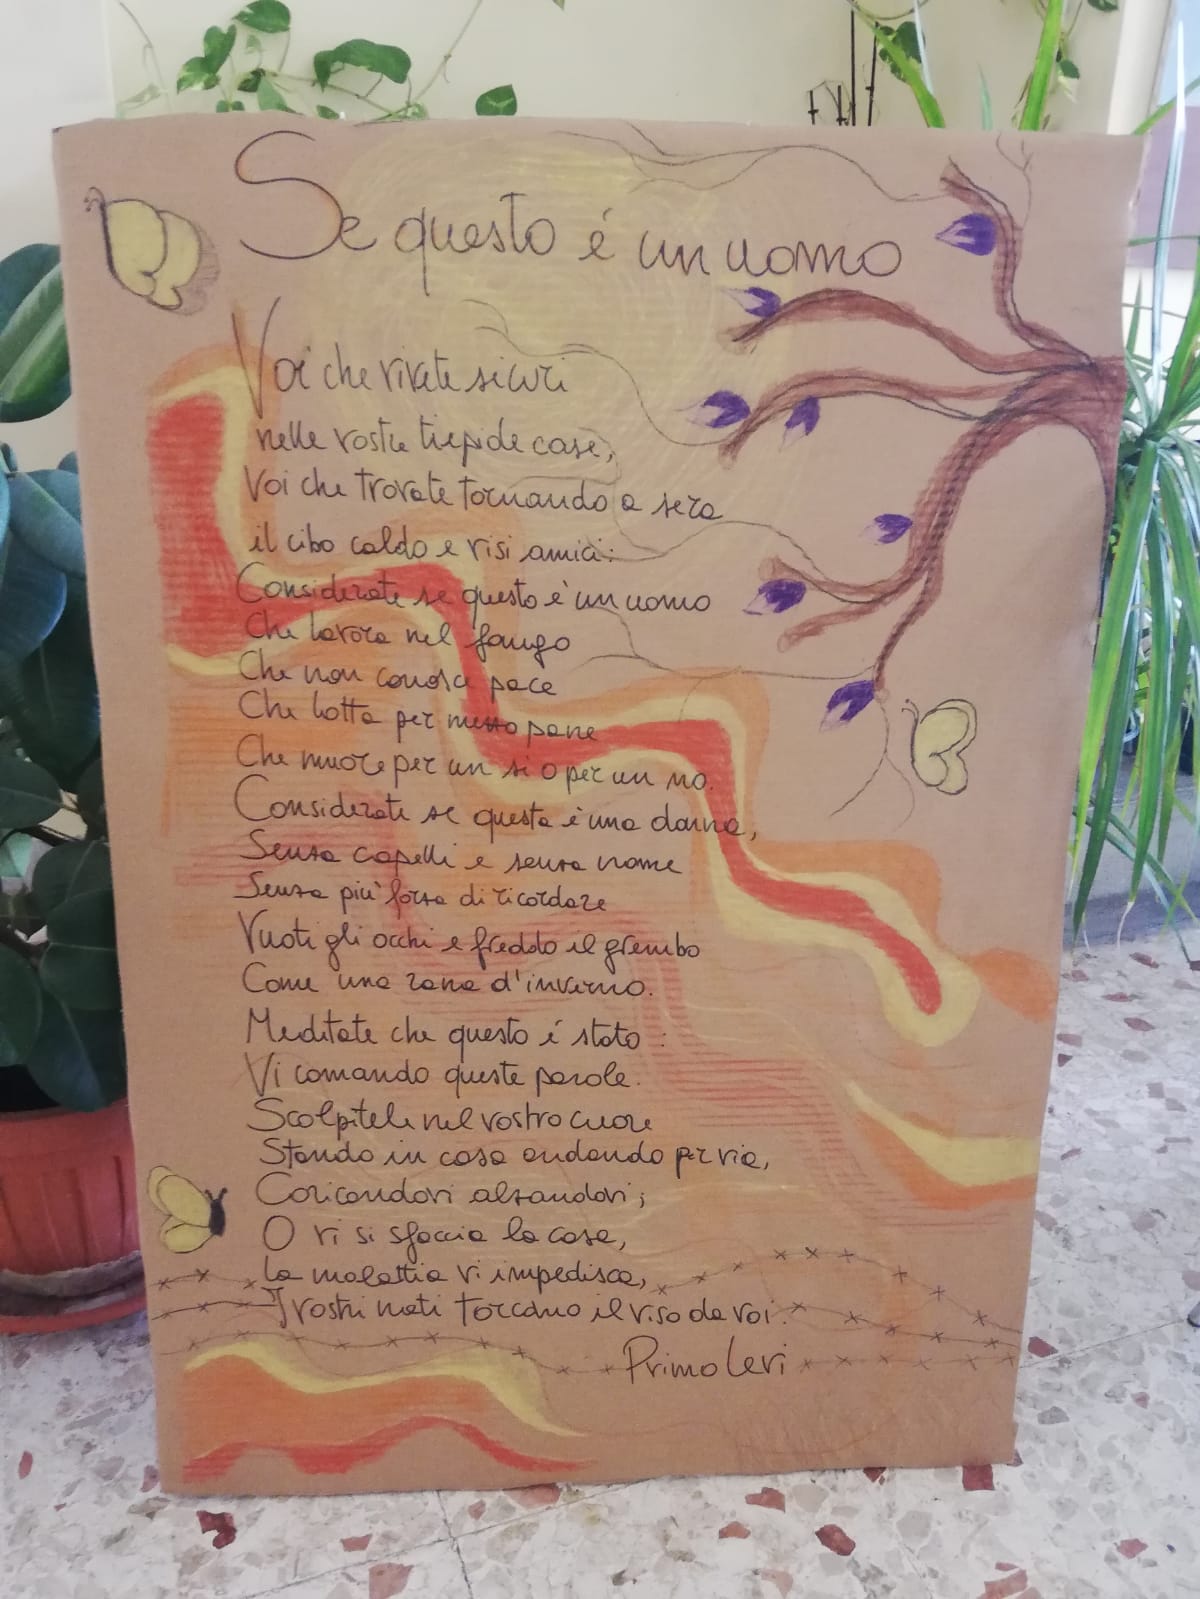 Se questo é un uomo
Voi che vivete sicuri
nelle vostre tiepide case,
Voi che trovate tornando a sera
il cibo caldo e visi amici:
Considerate se questo è un uomo
Che lavora nel fango
Che non conosce pace
Che lotta per mezzo pane
Che muore per un si o per un no.
Considerate se questa è una donna,
Senza capelli e senza nome
Senza più forza di ricordare
Vuoti gli occhi e freddo il grembo
Come una rana d'inverno.
Meditate che questo é stato :
Vi comando queste parole.
Scolpitele nel vostro cuore
Stando in casa andando per via,
Coricandovi alzandovi;
O vi si sfaccia la casa,
la malattia vi impedisca,
I vostri nati torcano il viso da voi.
Primo Levi